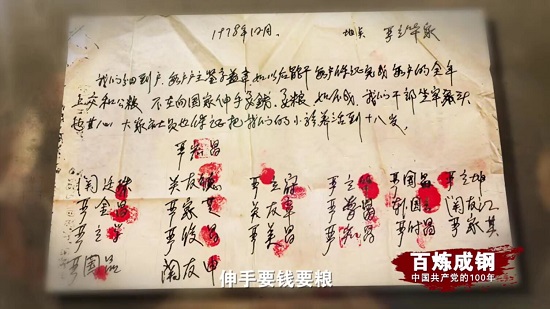 1978年12月. 地点 严立华家
我们分田到户,每户户主签字盖章,如以后能干,每户保证完成每户的全年
上交和公粮。不在向国家伸手要钱要粮。如不成,我们干部坐牢杀头
也甘心,大家社员也保证把我们的小孩养活到十八岁。
严宏昌
关廷珠 关友德 严立富 严立华 严国昌 严立坤
严金昌 严家芝 关友章 严学昌 韩国云 关友江
严立学 严俊昌 严美昌 严付昌 严家其
严国品 关友申
伸手要钱要粮
百炼成钢
中国共产党的100年